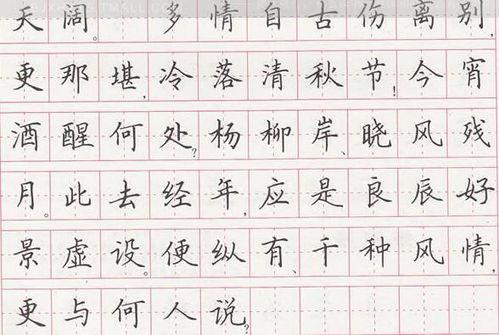 天阔。 多情自古伤离别,
更那堪,冷落清秋节!今宵
酒醒何处?杨柳岸、晓风残
月。此去经年,应是良辰好
景虚设。便纵有、千种风情,
更与何人说?